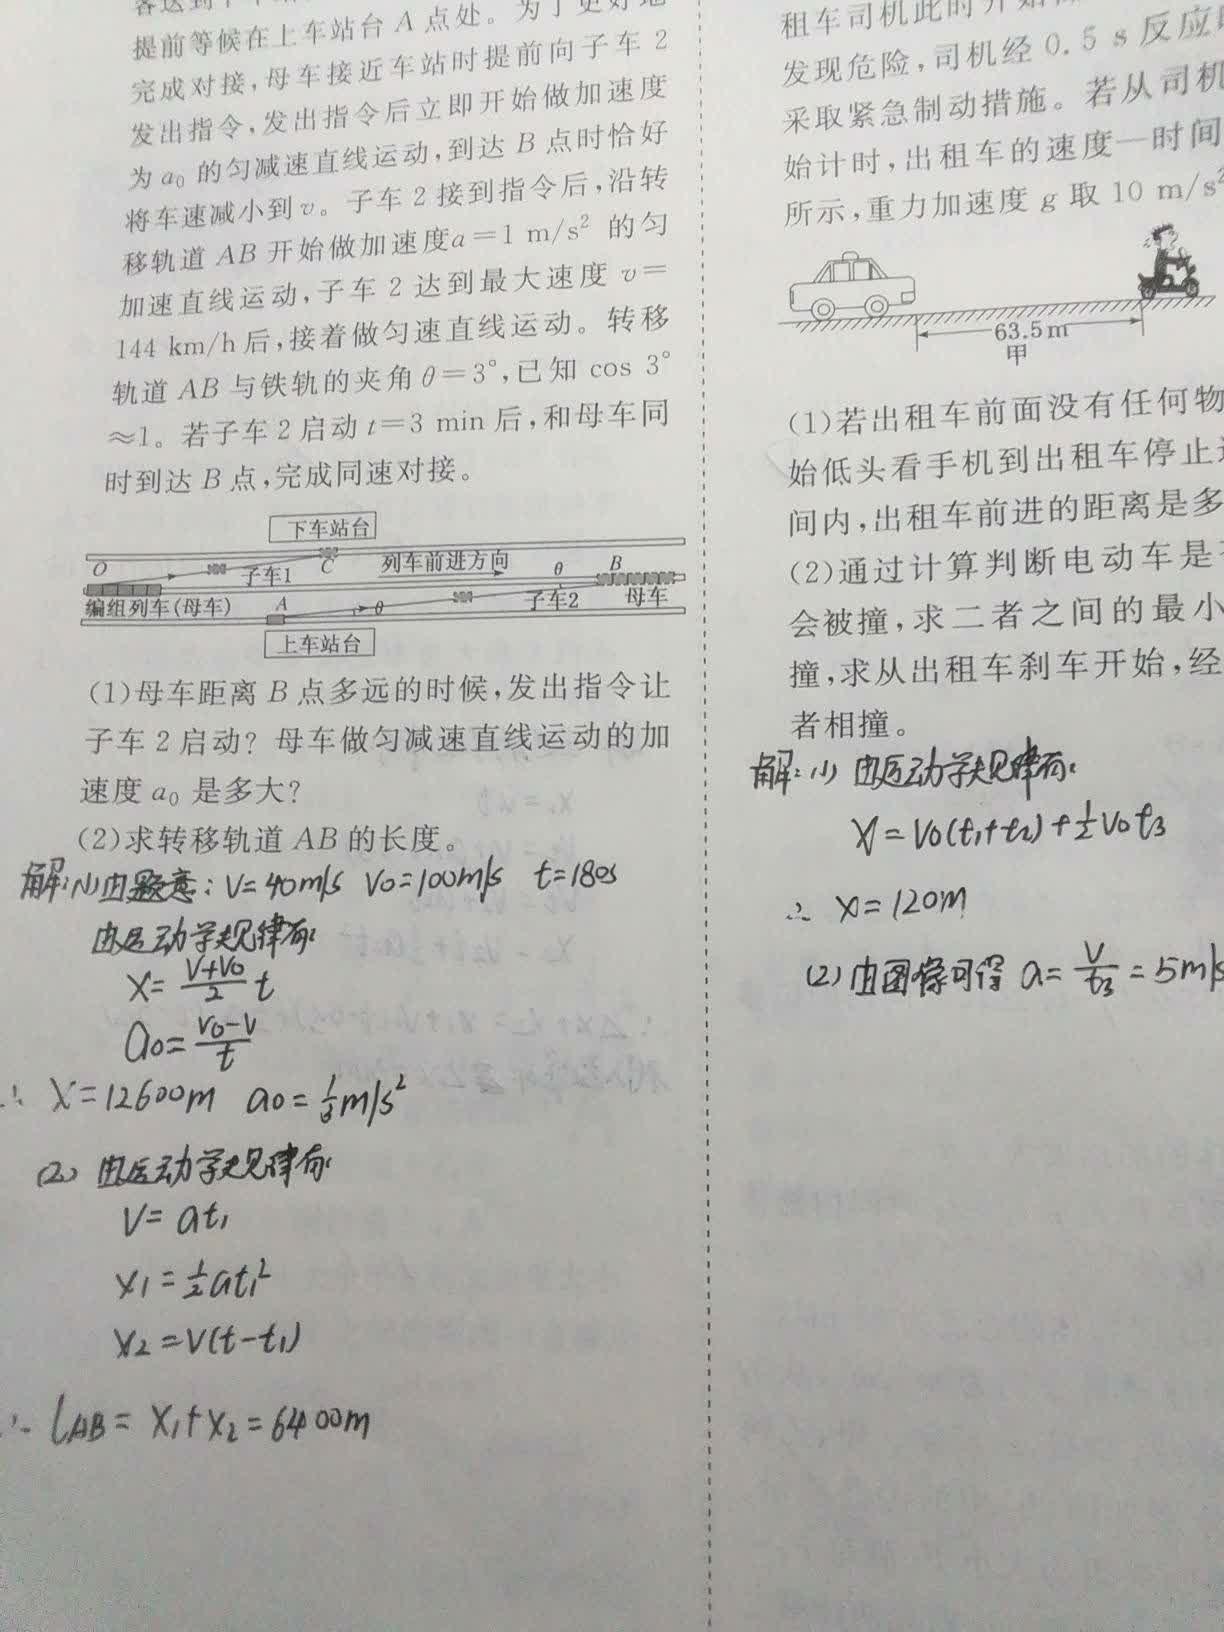 提前等候在上车站台 A 点处。为了更好地
完成对接,母车接近车站时提前向子车 2
发出指令,发出指令后立即开始做加速度
为 a₀ 的匀减速直线运动,到达 B 点时恰好
将车速减小到 v。子车 2 接到指令后,沿转
移轨道 AB 开始做加速度a=1 m/s² 的匀
加速直线运动,子车 2 达到最大速度 v=
144 km/h 后,接着做匀速直线运动。转移
轨道 AB 与铁轨的夹角 θ=3°,已知 cos 3°
≈1。若子车 2 启动 t=3 min 后,和母车同
时到达 B 点,完成同速对接。
下车站台
O 子车1 C 列车前进方向 θ B
编组列车(母车) A θ 子车2 母车
上车站台
(1)母车距离 B 点多远的时候,发出指令让
子车 2 启动? 母车做匀减速直线运动的加
速度 a₀ 是多大?
(2)求转移轨道 AB 的长度。
解:(1)由题意: V=40m/s V0=100m/s t=180s
由运动学规律有:
X=\frac{V+V0}{2}t
a0=\frac{V0-V}{t}
∴ X=12600m a0=\frac{1}{3}m/s²
(2) 由运动学规律有:
V=at₁
X1=\frac{1}{2}at₁²
X2=V(t-t₁)
∴ LAB=X₁+X₂=6400m
租车司机此时开始
发现危险,司机经 0.5 s 反应
采取紧急制动措施。若从司机
始计时,出租车的速度—时间
所示,重力加速度 g 取 10 m/s²
63.5 m
甲
(1)若出租车前面没有任何物
始低头看手机到出租车停止
间内,出租车前进的距离是多
(2)通过计算判断电动车是
会被撞,求二者之间的最小
撞,求从出租车刹车开始,经
者相撞。
解:(1) 由运动学规律有:
X=V0(t₁+t2)+\frac{1}{2}V0t3
∴ X=120m
(2)由图像可得 a=\frac{V}{t3}=5m/s